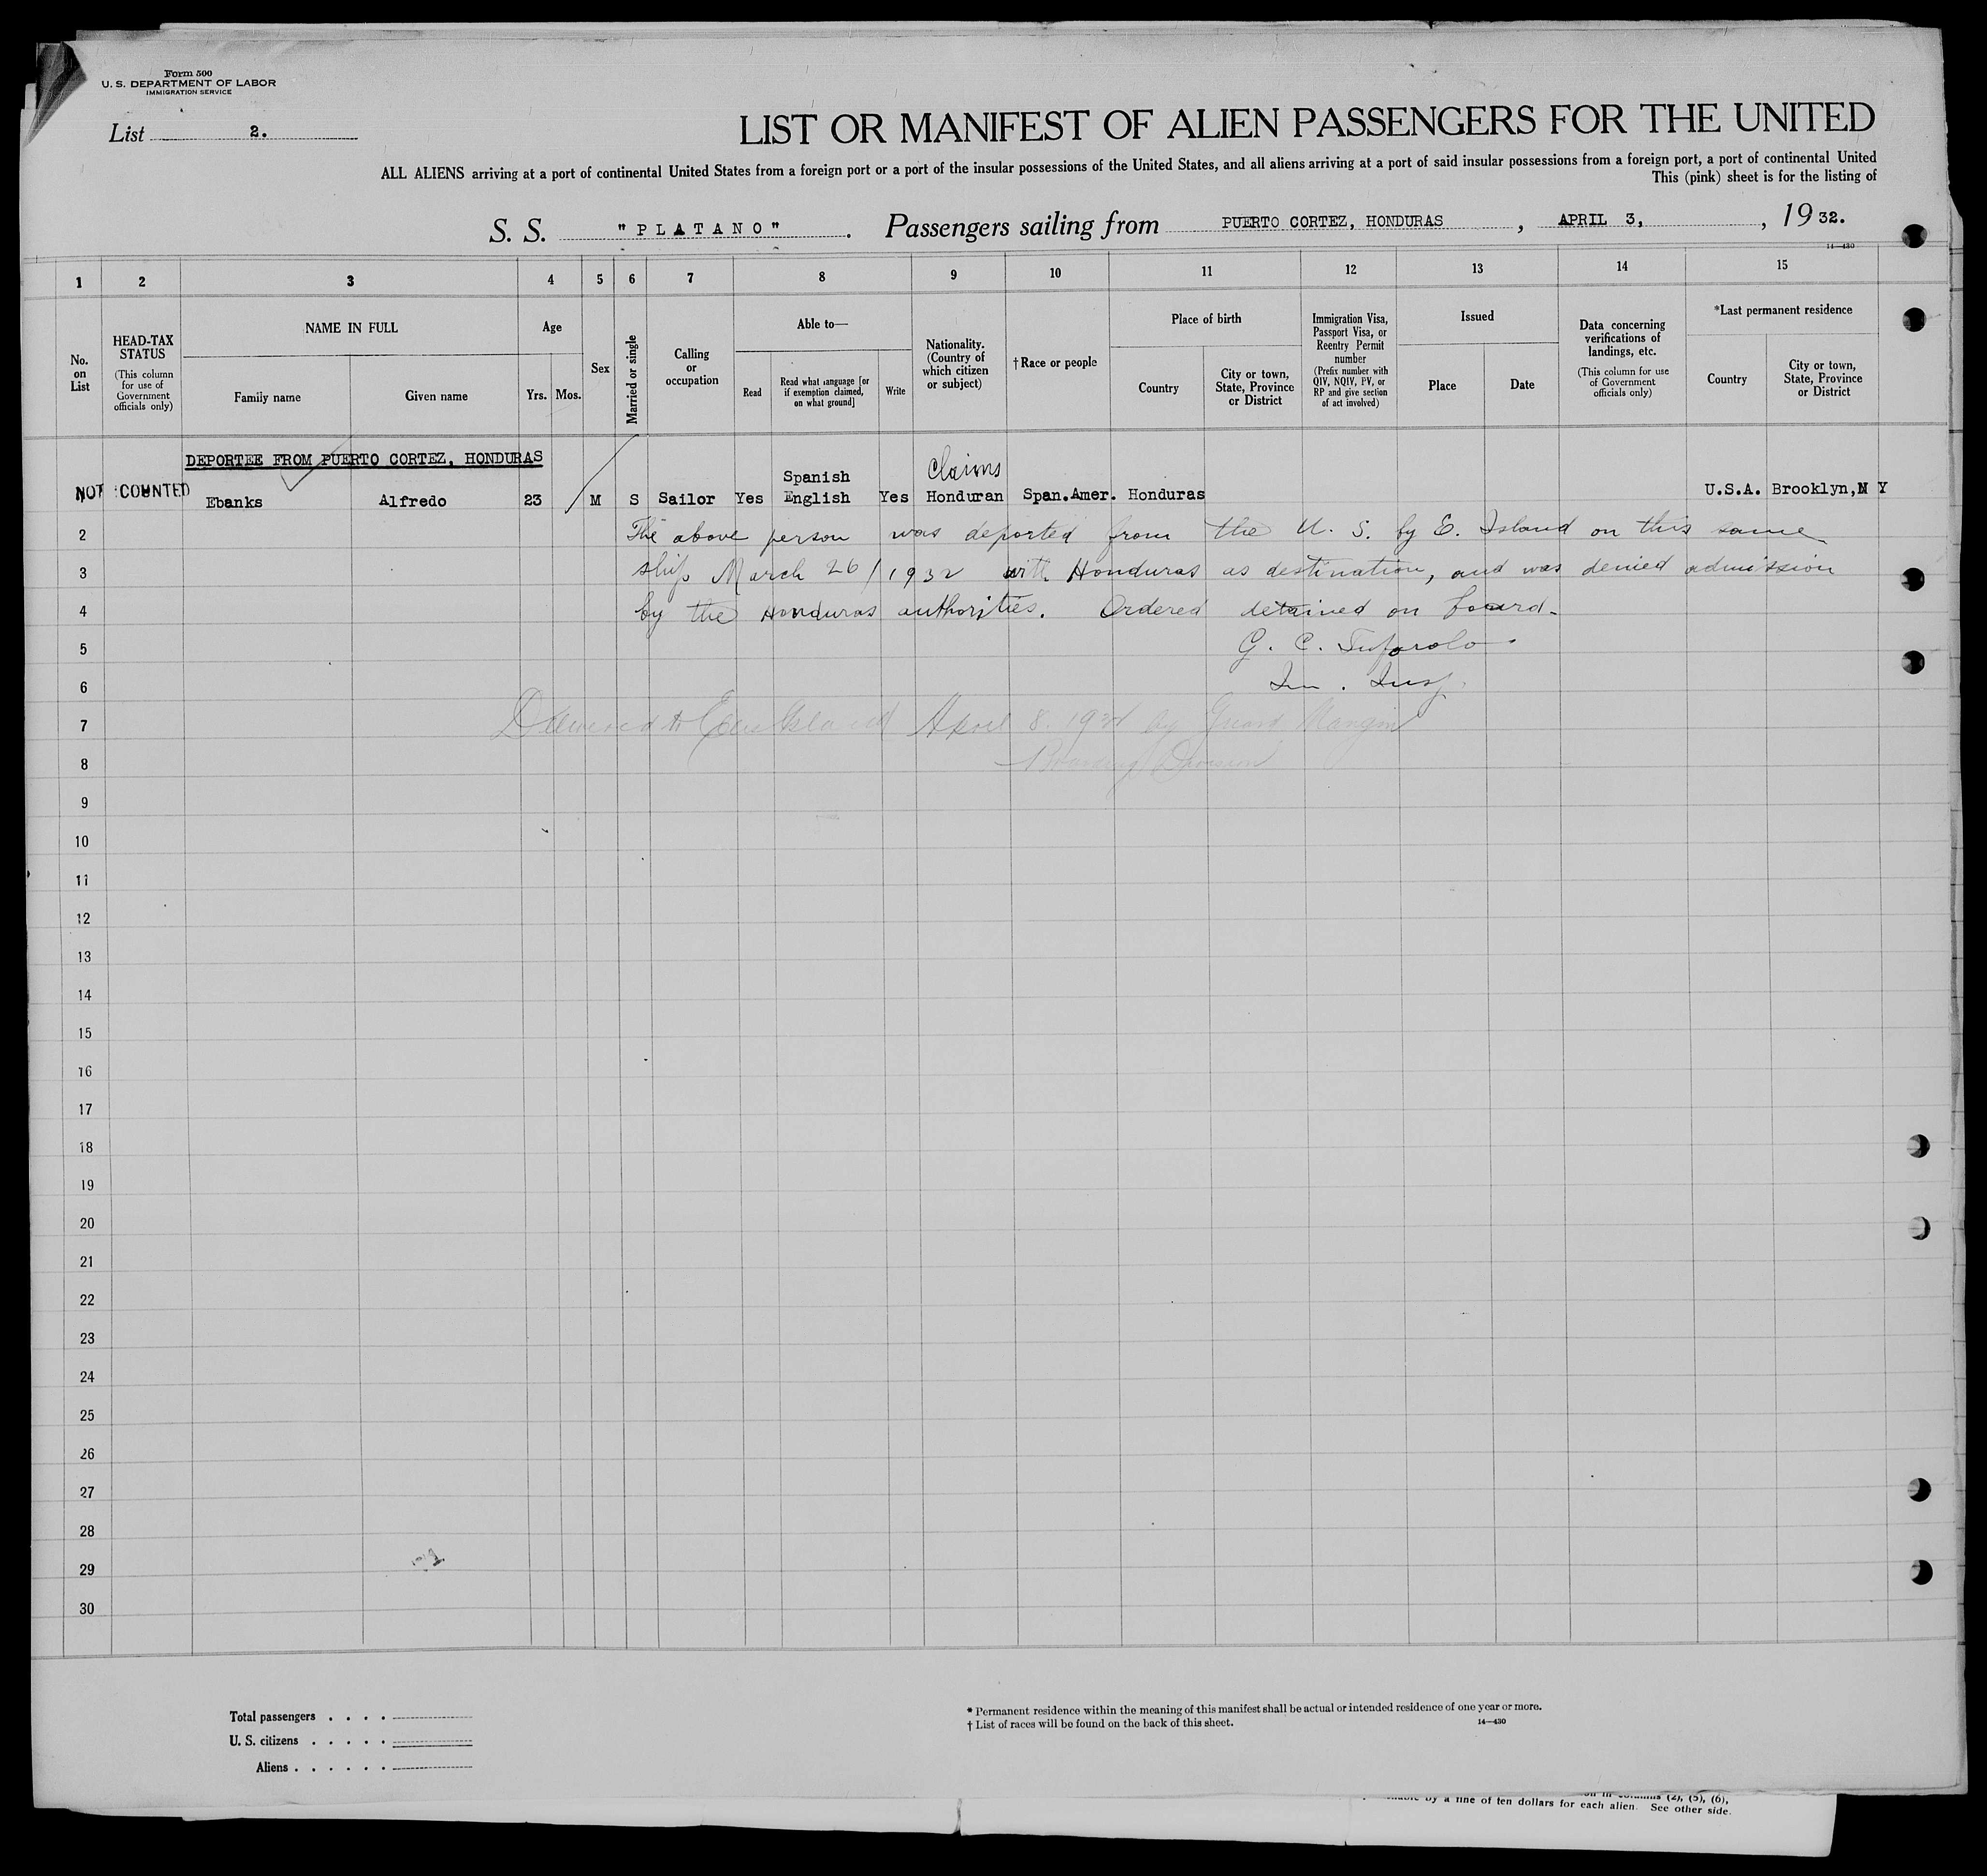 Form 500
U. S. DEPARTMENT OF LABOR
IMMIGRATION SERVICE
List 2.
LIST OR MANIFEST OF ALIEN PASSENGERS FOR THE UNITED
ALL ALIENS arriving at a port of continental United States from a foreign port or a port of the insular possessions of the United States, and all aliens arriving at a port of said insular possessions from a foreign port, a port of continental United
This (pink) sheet is for the listing of
S. S. "PLATANO". Passengers sailing from PUERTO CORTEZ, HONDURAS, APRIL 3, , 1932.
14—430
1 2 3 4 5 6 7 8 9 10 11 12 13 14 15
No. on List
HEAD-TAX STATUS
(This column for use of Government officials only)
NAME IN FULL
Family name
Given name
Age
Yrs.
Mos.
Sex
Married or single
Calling or occupation
Able to—
Read
Read what language [or if exemption claimed, on what ground]
Write
Nationality. (Country of which citizen or subject)
†Race or people
Place of birth
Country
City or town, State, Province or District
Immigration Visa, Passport Visa, or Reentry Permit number
(Prefix number with QIV, NQIV, PV, or RP and give section of act involved)
Issued
Place
Date
Data concerning verifications of landings, etc.
(This column for use of Government officials only)
*Last permanent residence
Country
City or town, State, Province or District
DEPORTEE FROM PUERTO CORTEZ, HONDURAS
claims
Spanish
NOT COUNTED Ebanks Alfredo 23 M S Sailor Yes English Yes Honduran Span.Amer. Honduras U.S.A. Brooklyn,N Y
2 The above person was deported from the U. S. by E. Island on this same
3 ship March 26/1932 with Honduras as destination, and was denied admission
4 by the Honduras authorities. Ordered detained on board-
5 G. C.
6 Im. Insp.
7 Island April 8, 1932 by Guard
8 Boarding Division
9
10
11
12
13
14
15
16
17
18
19
20
21
22
23
24
25
26
27
28
29
30
Total passengers . . . .
U. S. citizens . . . . .
Aliens . . . . . .
* Permanent residence within the meaning of this manifest shall be actual or intended residence of one year or more.
† List of races will be found on the back of this sheet.
14—430
by a fine of ten dollars for each alien. See other side.